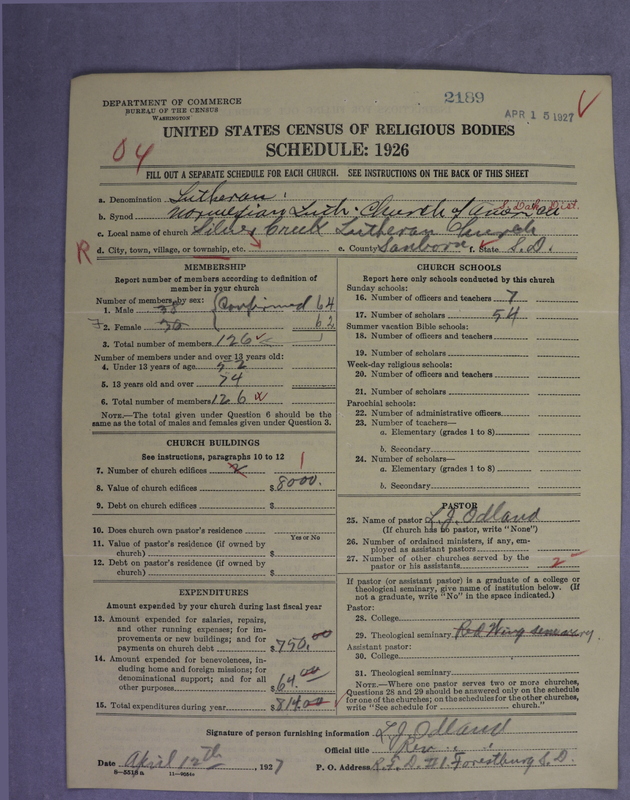 DEPARTMENT OF COMMERCE
BUREAU OF THE CENSUS
WASHINGTON
2189
APR 15 1927
UNITED STATES CENSUS OF RELIGIOUS BODIES
SCHEDULE: 1926
04
FILL OUT A SEPARATE SCHEDULE FOR EACH CHURCH. SEE INSTRUCTIONS ON THE BACK OF THIS SHEET
a. Denomination Lutheran
b. Synod Norwegian Luth. Church of America S. Dak. Dist.
c. Local name of church Silver Creek Lutheran Church
R d. City, town, village, or township, etc. e. County Sanborn f. State S.D.
MEMBERSHIP
Report number of members according to definition of member in your church
Number of members by sex:
1. Male 38 Confirmed 64
2. Female 62
3. Total number of members 126
Number of members under and over 13 years old:
4. Under 13 years of age 52
5. 13 years old and over 74
6. Total number of members 126
NOTE.—The total given under Question 6 should be the
same as the total of males and females given under Question 3.
CHURCH BUILDINGS
See instructions, paragraphs 10 to 12
7. Number of church edifices 1
8. Value of church edifices $8000.
9. Debt on church edifices $
10. Does church own pastor's residence
Yes or No
11. Value of pastor's residence (if owned by
church) $
12. Debt on pastor's residence (if owned by
church) $
EXPENDITURES
Amount expended by your church during last fiscal year
13. Amount expended for salaries, repairs,
and other running expenses; for im-
provements or new buildings; and for
payments on church debt $750.00
14. Amount expended for benevolences, in-
cluding home and foreign missions; for
denominational support; and for all
other purposes $64.00
15. Total expenditures during year $814.00
CHURCH SCHOOLS
Report here only schools conducted by this church
Sunday schools:
16. Number of officers and teachers 7
17. Number of scholars 54
Summer vacation Bible schools:
18. Number of officers and teachers
19. Number of scholars
Week-day religious schools:
20. Number of officers and teachers
21. Number of scholars
Parochial schools:
22. Number of administrative officers
23. Number of teachers—
a. Elementary (grades 1 to 8)
b. Secondary
24. Number of scholars—
a. Elementary (grades 1 to 8)
b. Secondary
PASTOR
25. Name of pastor L.J. Odland
(If church has no pastor, write "None")
26. Number of ordained ministers, if any, em-
ployed as assistant pastors
27. Number of other churches served by the
pastor or his assistants 2
If pastor (or assistant pastor) is a graduate of a college or
theological seminary, give name of institution below. (If
not a graduate, write "No" in the space indicated.)
Pastor:
28. College
29. Theological seminary Red Wing seminary.
Assistant pastor:
30. College
31. Theological seminary
NOTE.—Where one pastor serves two or more churches,
Questions 28 and 29 should be answered only on the schedule
for one of the churches; on the schedules for the other churches,
write "See schedule for church."
Signature of person furnishing information L.J. Odland
Official title Rev.
Date April 12th, 1927 P. O. Address R.F.D. #1. Forestburg S.D.